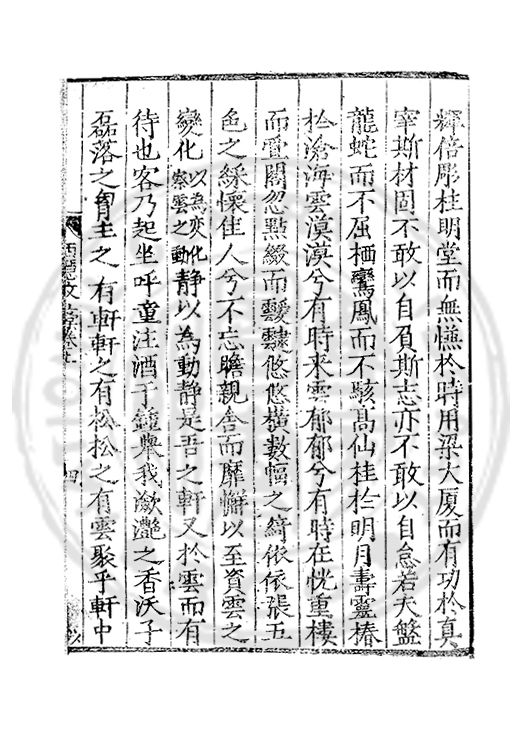 輝倍彤桂明堂而無憾於時用梁大厦而有功於真
宰斯材固不敢以自負斯志亦不敢以自怠若夫盤
龍蛇而不屈栖鸞鳳而不駭高仙桂於明月壽靈椿
於滄海雲漠漠兮有時来雲郁郁兮有時在恍重樓
而疊閣忽點綴而靉靆悠悠橫數幅之綺依依張五
色之綵懷佳人兮不忘瞻親舍而靡懈以至資雲之
變化以為变化察雲之動靜以為動靜是吾之軒又於雲而有
待也客乃起坐呼童注酒于鍾擧我瀲灔之香沃子
磊落之胷主之有軒軒之有松松之有雲聚乎軒中
四